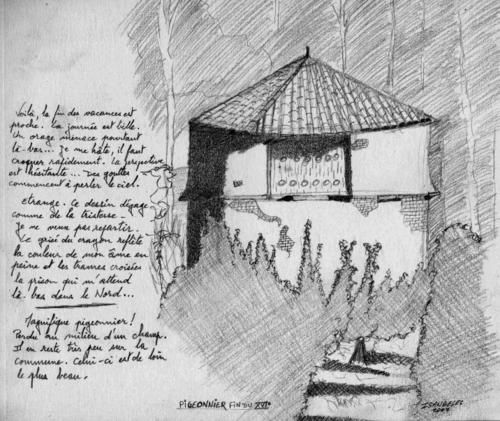 Voilà, la fin des vacances est
proche. La journée est belle.
Un orage menace pourtant
là-bas... Je me hâte, il faut
croquer rapidement. La perspective
est hésitante... Des gouttes
commencent à perler le ciel.
Etrange. Ce dessin dégage
comme de la tristesse.
Je ne veux pas repartir.
Le grisé du crayon reflète
la couleur de mon âme en
peine et les trames croisées
la prison qui m'attend
là-bas dans le Nord...
Magnifique pigeonnier!
Perdu au milieu d'un champ.
Il en reste très peu sur la
commune. Celui-ci est de loin
le plus beau.
PIGEONNIER FIN DU XVIe